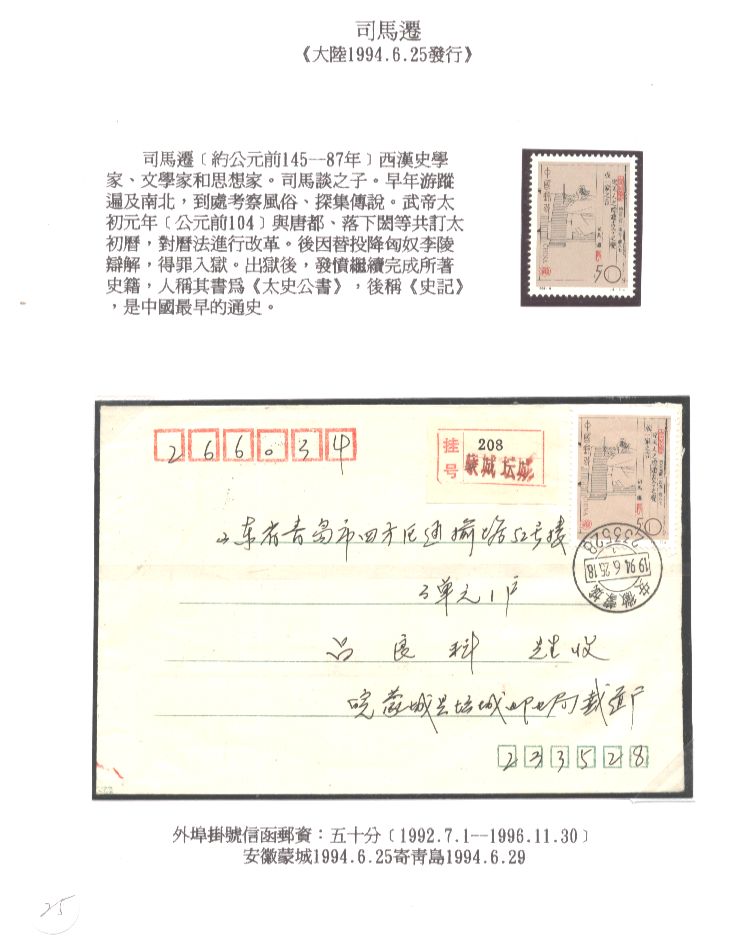 司馬遷
《大陸1994.6.25發行》
司馬遷﹝約公元前145--87年﹞西漢史學
家、文學家和思想家。司馬談之子。早年游蹤
遍及南北，到處考察風俗、採集傳說。武帝太
初元年﹝公元前104﹞與唐都、落下閎等共訂太
初曆，對曆法進行改革。後因替投降匈奴李陵
辯解，得罪入獄。出獄後，發憤繼續完成所著
史籍，人稱其書爲《太史公書》，後稱《史記》
，是中國最早的通史。
中國郵政
50
266034
挂号
208
蒙城坛城
中國郵政
50
山东省青岛市四方区
52号楼
3单元1户
吕良科 先生收
皖蒙城县坛城邮电局戴
233528
233528
1994.6.25.18
安徽蒙城
外埠掛號信函郵資：五十分﹝1992.7.1--1996.11.30﹞
安徽蒙城1994.6.25寄靑島1994.6.29
25